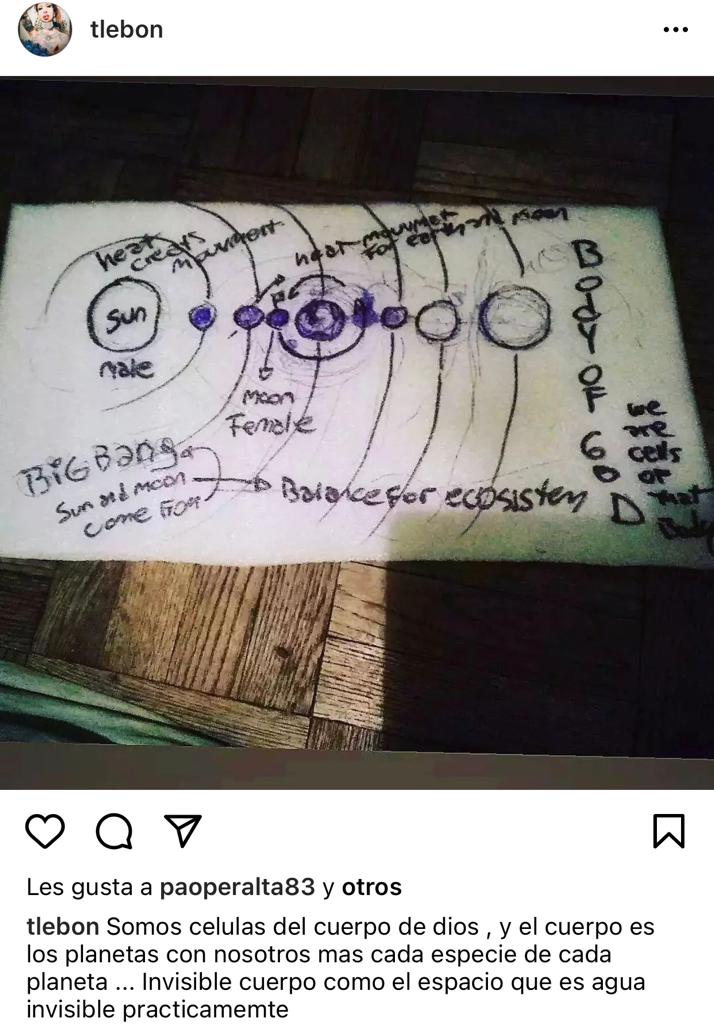 tlebon
heat creats movment
heat mouvmet
for earth and moon
Sun
male
Moon
Female
BiGBang
Sun and moon
come from
Balance for ecosisten
BODY OF GOD
we
are
cells
of
that
Body
Les gusta a paoperalta83 y otros
tlebon Somos celulas del cuerpo de dios , y el cuerpo es
los planetas con nosotros mas cada especie de cada
planeta ... Invisible cuerpo como el espacio que es agua
invisible practicamemte